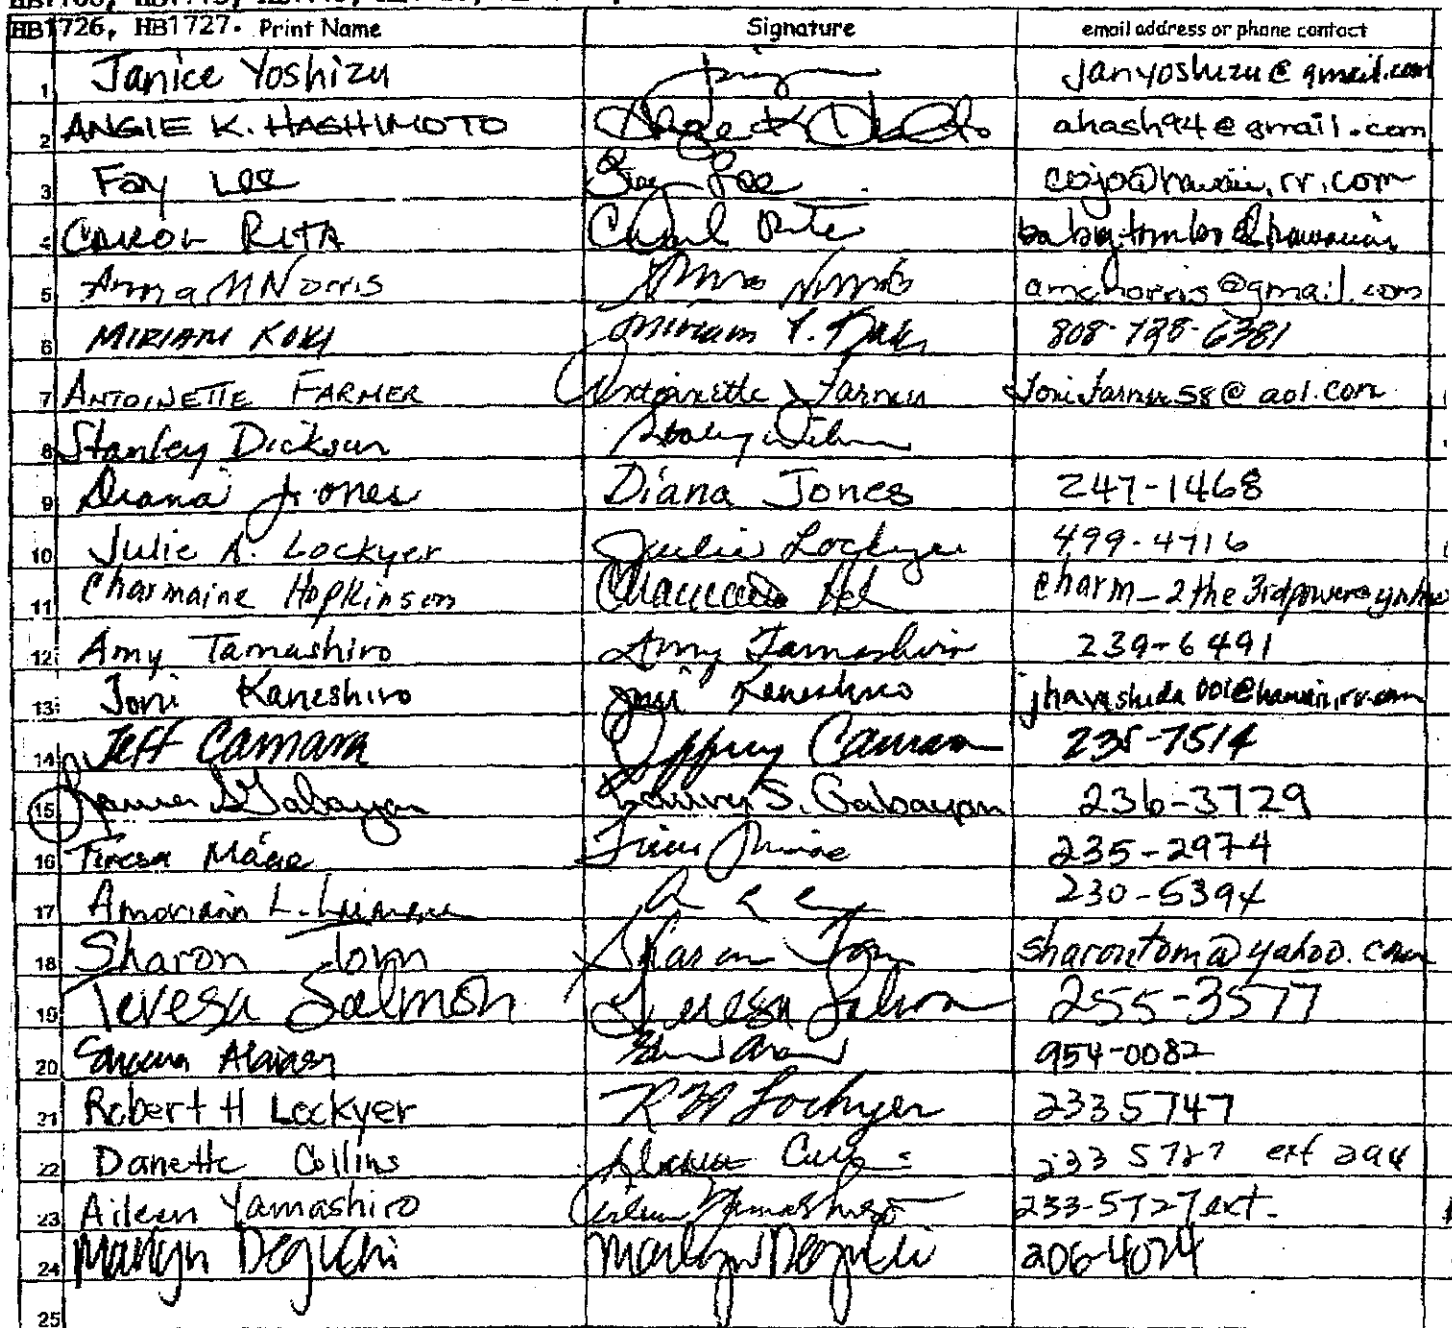 HB1726, HB1727. Print Name Signature email address or phone contact
1 Janice Yoshizu janyoshizu@gmail.com
2 ANGIE K. HASHIMOTO ahash94@gmail.com
3 Fay Lee Fay Lee cojo@hawaii.rr.com
4 CAROL RITA Carol Rita
5 Anna M Norris Anna Norris @gmail.com
6 MIRIAM KOKI Miriam Y. Koki 808-728-6381
7 ANTOINETTE FARMER Antoinette Farmer tonifarmer58@aol.com
8 Stanley Dickson
9 Diana Jones Diana Jones 247-1468
10 Julie A. Lockyer Julie Lockyer 499-4716
11 Charmaine Hopkinson charm_2the3rdpower@yahoo
12 Amy Tamashiro Amy Tamashiro 239-6491
13 Joni Kaneshiro Joni Kaneshiro jhayashida001@hawaii.rr.com
14 Jeff Camara Jeffrey Camara 235-7514
15 S. Gabayan S. Gabayan 236-3729
16 Teresa 235-2974
17 L. 230-5394
18 Sharon Tom Sharon Tom sharontom@yahoo.com
19 Teresa Salmon Teresa Salmon 255-3577
20 954-0082
21 Robert H Lockyer R H Lockyer 233 5747
22 Danette Collins 233 5727 ext 294
23 Aileen Yamashiro Aileen Yamashiro 233-5727 ext-
24 Marilyn Deguchi Marilyn Deguchi 206-4024
25